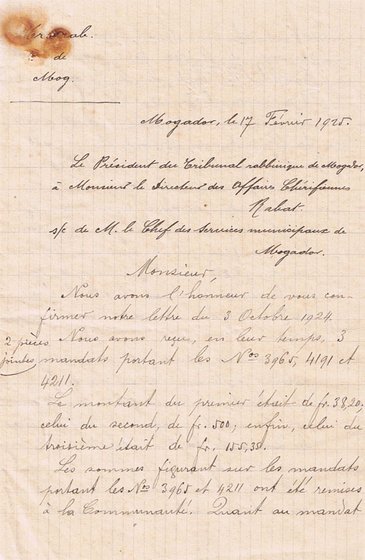 rab.
de
Mog.
Mogador, le 17 Février 1925.
Le Président du Tribunal rabbinique de Mogador,
à Monsieur le Directeur des Affaires Chérifiennes
Rabat.
s/c de M. le Chef des Services municipaux de
Mogador.
Monsieur,
Nous avons l'honneur de vous con-
firmer notre lettre du 3 Octobre 1924.
2 pièces
jointes
Nous avons reçu, en leur temps, 3
mandats portant les Nos 3965, 4191 et
4211.
Le montant du premier était de fr. 38,20;
celui du second, de fr. 500; enfin, celui du
troisième était de fr. 155,35.
Les sommes figurant sur les mandats
portant les Nos 3965 et 4211 ont été remises
à la Communauté. Quant au mandat